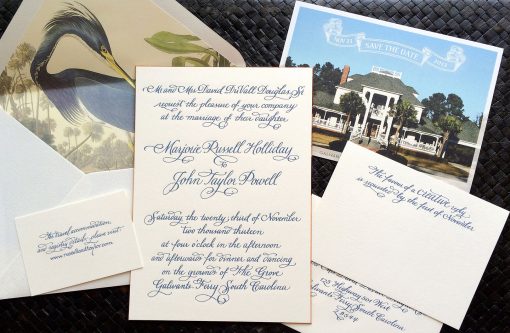 Mr and Mrs David DuVall Douglas, Sr
request the pleasure of your company
at the marriage of their daughter
Marjorie Russell Holliday
John Taylor Powell
Saturday the twenty third of November
two thousand thirteen
at four o'clock in the afternoon
and afterwards for dinner and dancing
on the grounds of The Grove
Galivants Ferry South Carolina
NOV 23
SAVE THE DATE
2013
The favour of a creative reply
is requested by the first of November
For travel accommodations
and registry details please visit
Highway 501 West
Galivants Ferry, South Carolina
29544